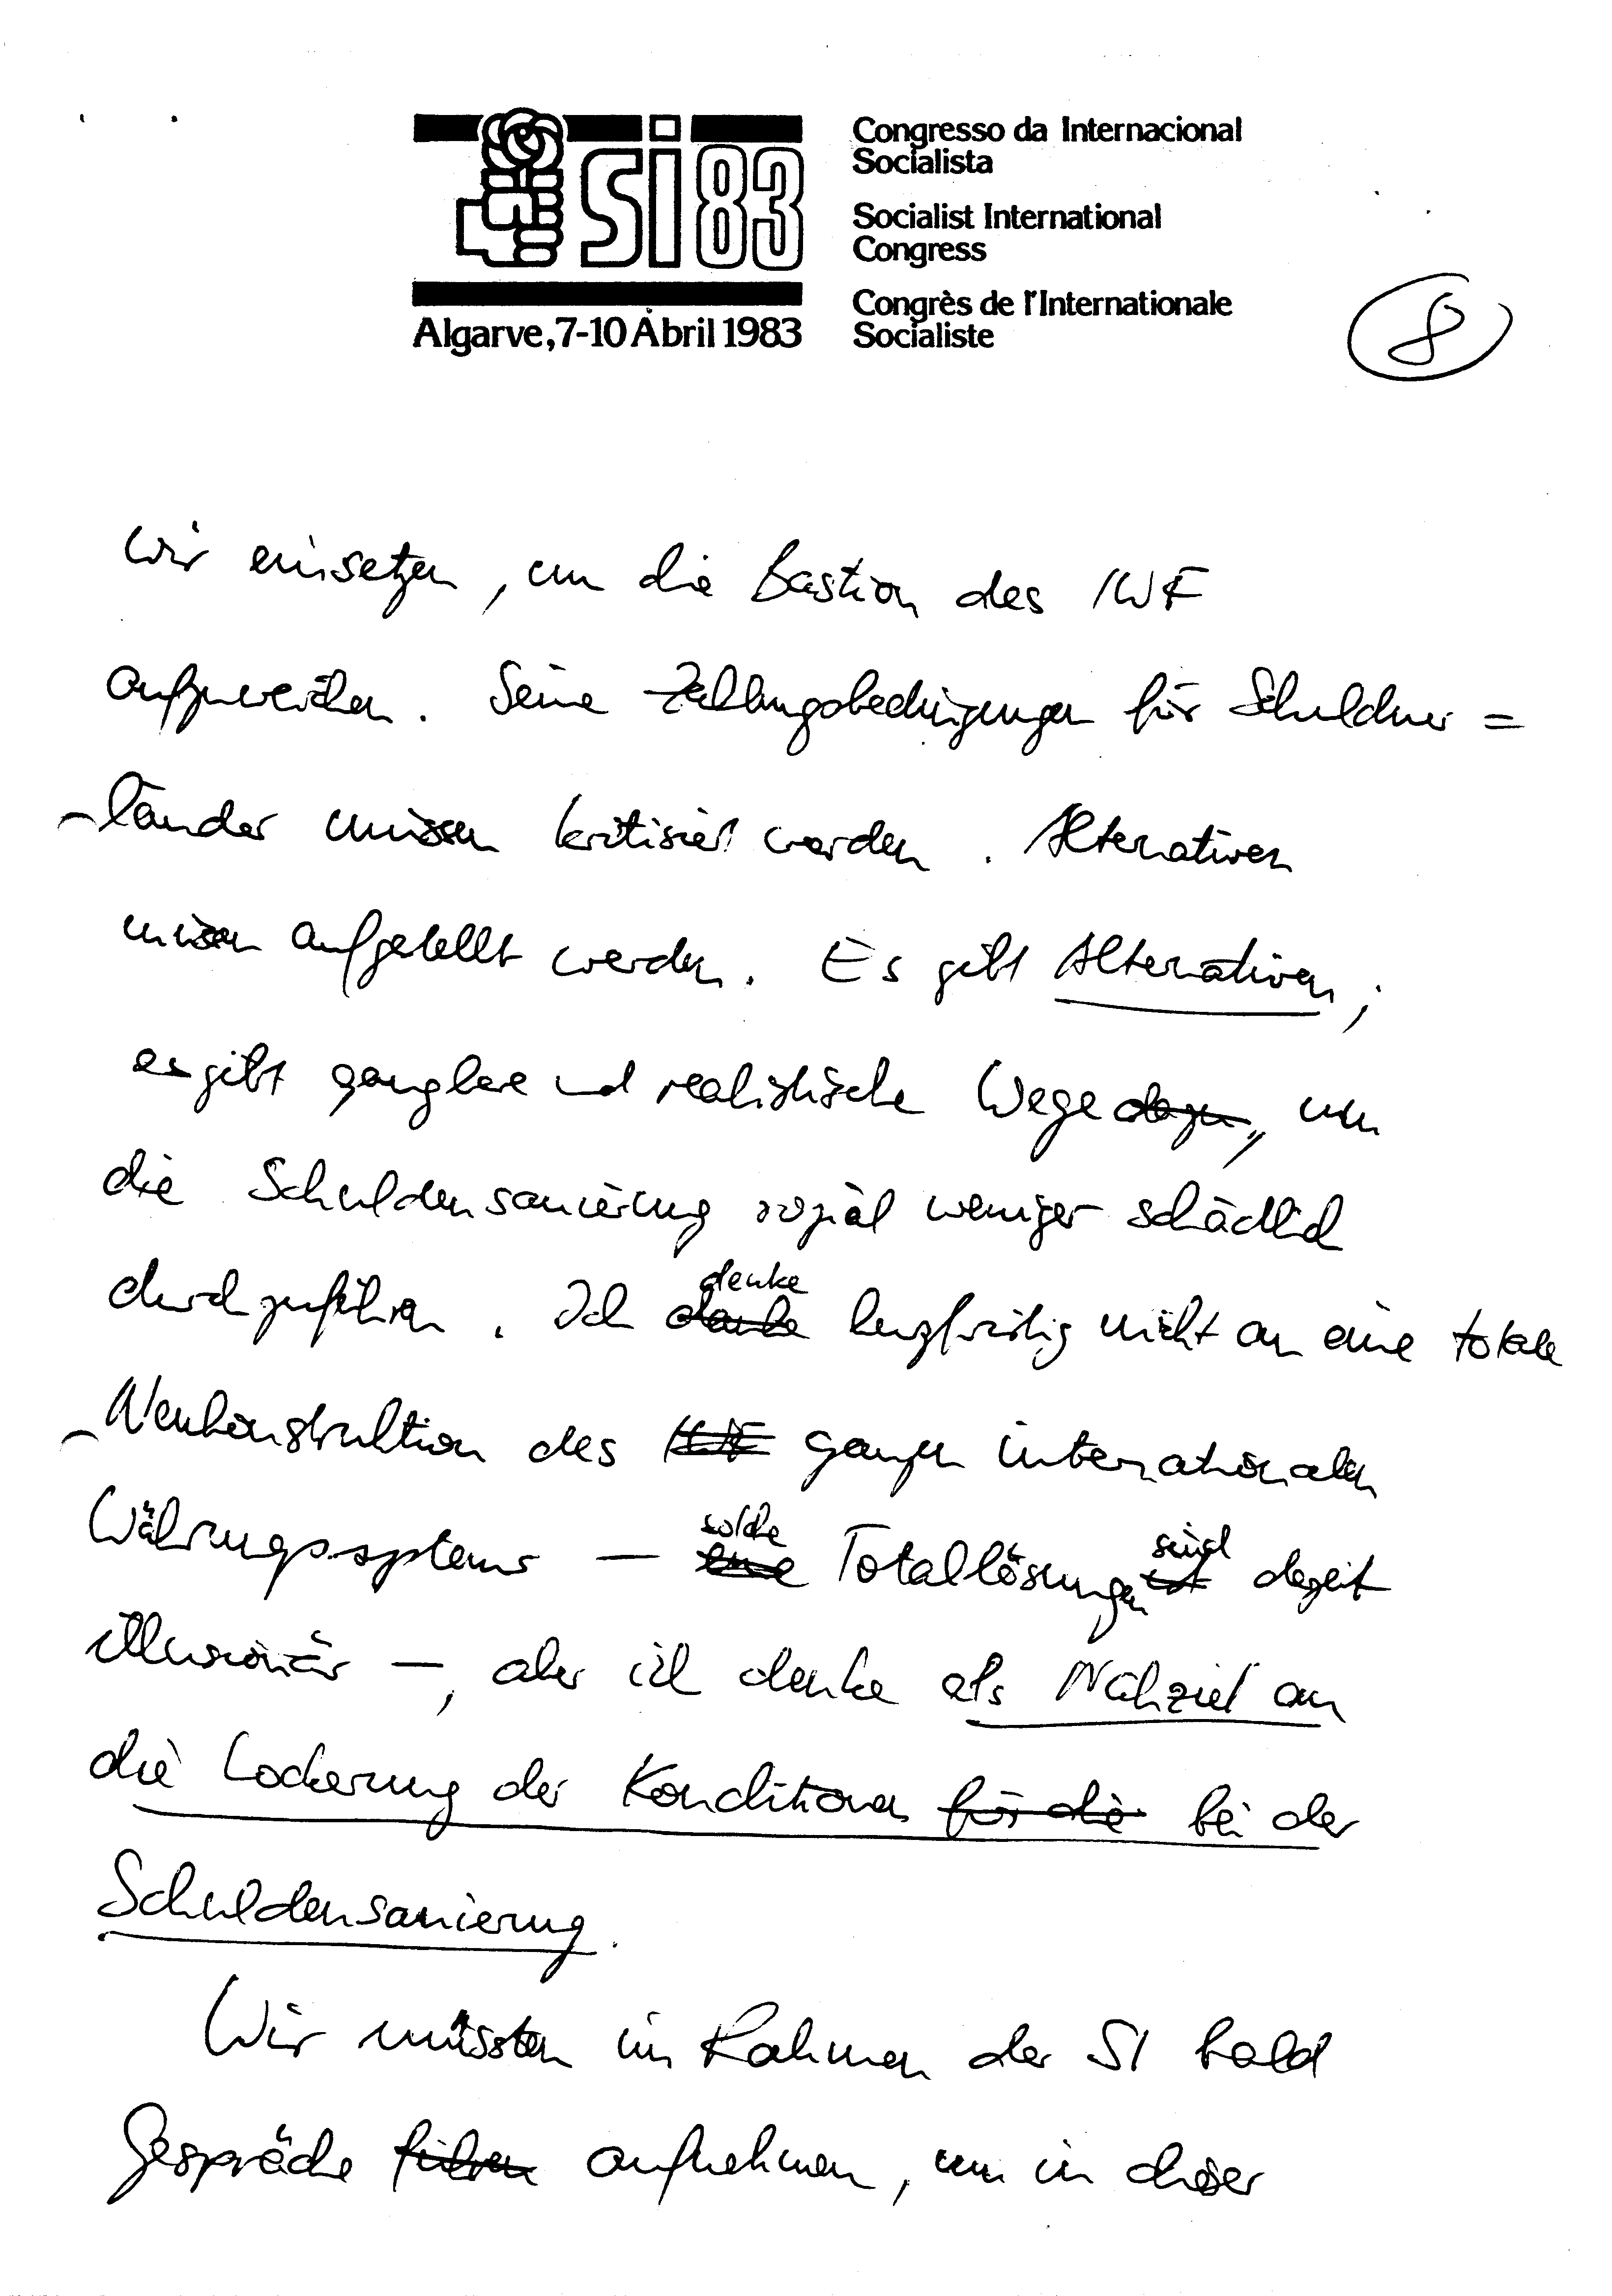 si 83
Algarve, 7-10 Abril 1983
Congresso da Internacional
Socialista
Socialist International
Congress
Congrès de l'Internationale
Socialiste
8
wir einsetzen, um die Bastion des IWF
aufzuweichen. Seine Zahlungsbedingungen für Schuldner =
länder müssen kritisiert werden. Alternativen
müssen aufgestellt werden. Es gibt Alternativen;
es gibt gangbare und realistische Wege dazu, um
die Schuldensanierung sozial weniger schädlich
durchzuführen. Ich denke kurzfristig nicht an eine totale
Neukonstruktion des IWF ganzen internationalen
Währungssystems — solche eine Totallösungen sind ist derzeit
illusionär —, aber ich denke als Nahziel an
die Lockerung der Konditionen für die bei der
Schuldensanierung.
Wir müssten im Rahmen der SI bald
Gespräche führen aufnehmen, um in dieser